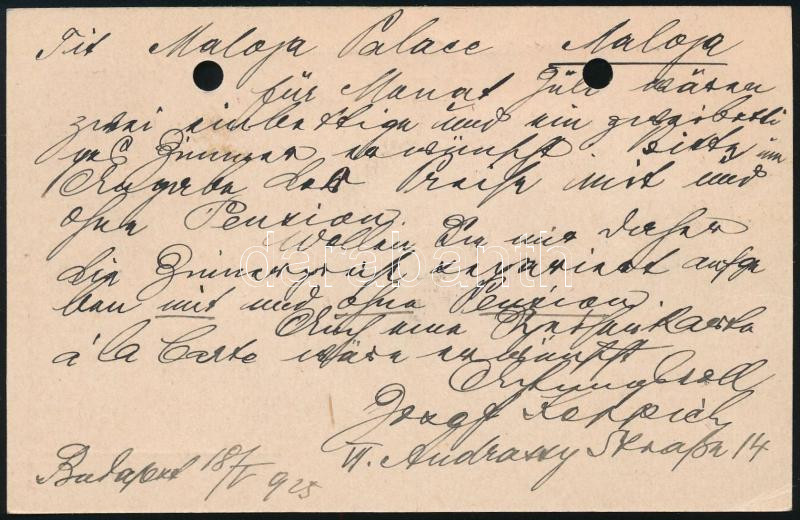 Tit Maloja Palace Maloja
für Monat Juli wären
zwei einbettige und ein zweibetti
ges Zimmer erwünscht. Bitte um
Angabe der Preise mit und
ohne Pension.
Wollen Sie mir daher
die Zimmerpreise separiert aufge
ben mit und ohne Pension.
Auch eine Speisenkarte
á la Carte wäre erwünscht
Achtungsvoll
Koppich
VI. Andrassy Straße 14
Budapest 18/V 925
darabanth